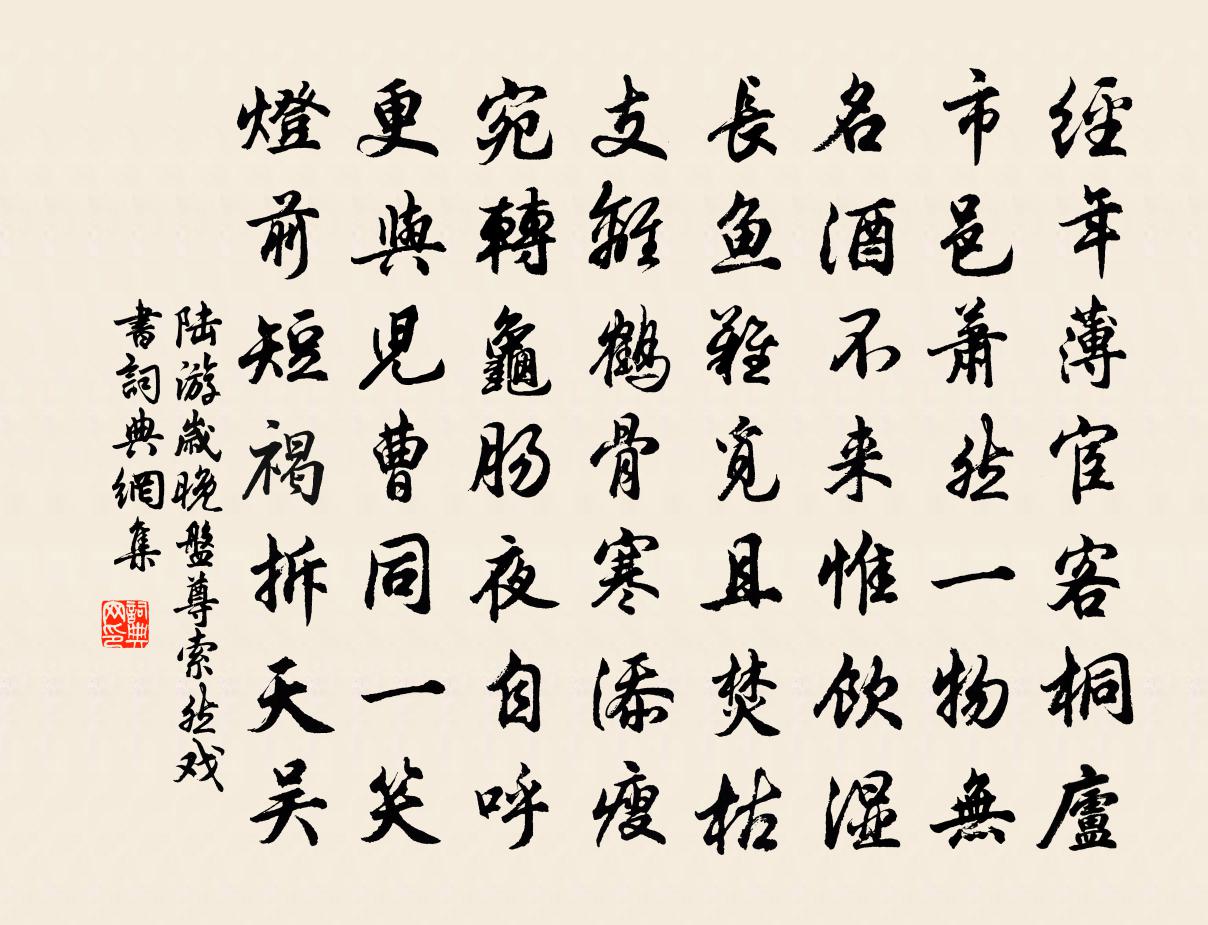 經年薄宦客桐廬
市邑蕭然一物無
名酒不来惟飲濕
長魚難覓且焚枯
支離鶴骨寒添瘦
宛轉龜腸夜自呼
更與兒曹同一笑
燈前短褐拆天吴
陆游歲晚盤尊索然戏
書詞典網集
詞典网印